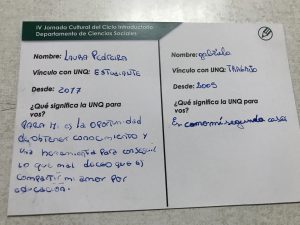 IV Jornada Cultural del Ciclo Introductorio
Departamento de Ciencias Sociales
Nombre: LAURA PEDREIRA
Vínculo con UNQ: ESTUDIANTE
Desde: 2017
¿Qué significa la UNQ para
vos?
PARA MI ES LA OPORTUNIDAD
DE OBTENER CONOCIMIENTO Y
UNA HERRAMIENTA PARA CONSEGUIR
LO QUE MAS DESEO QUE ES
COMPARTIR MI AMOR POR
EDUCACION.
Nombre: gabriela
Vínculo con UNQ: TRABAJO
Desde: 2005
¿Qué significa la UNQ para
vos?
Es como mi segunda casa